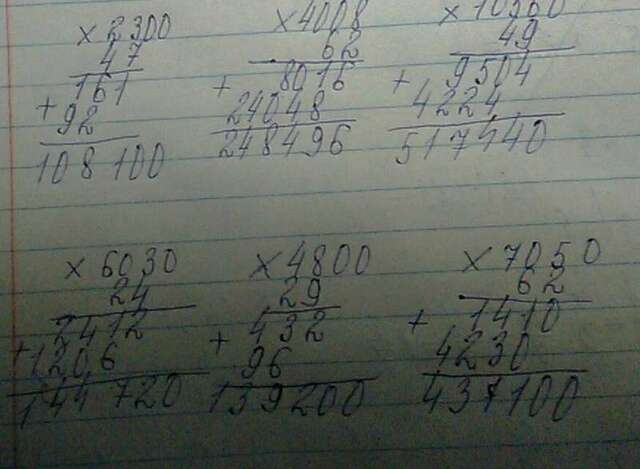 × 2300
47
161
+
92
108100
× 4008
62
8016
+
24048
248496
× 10560
49
9504
+
4224
517440
× 6030
24
2412
+
1206
144720
× 4800
29
432
+
96
139200
× 7050
62
1410
+
4230
437100